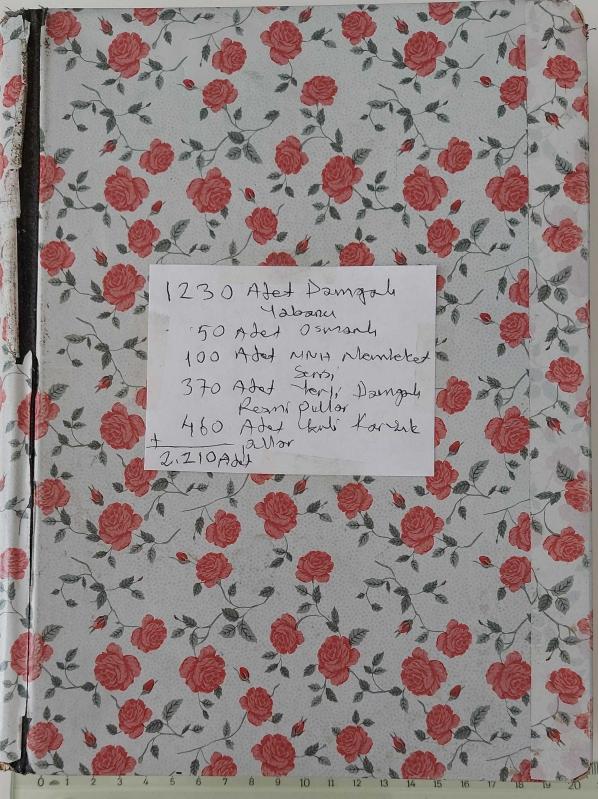 1230 Adet Damgalı
Yabancı
50 Adet Osmanlı
100 Adet MNH Memleket
Serisi
370 Adet Yerli Damgalı
Resmi Pullar
460 Adet Yerli Karışık
+ Pullar
2.210 Adet
0 1 2 3 4 5 6 7 8 9 10 11 12 13 14 15 16 17 18 19 20